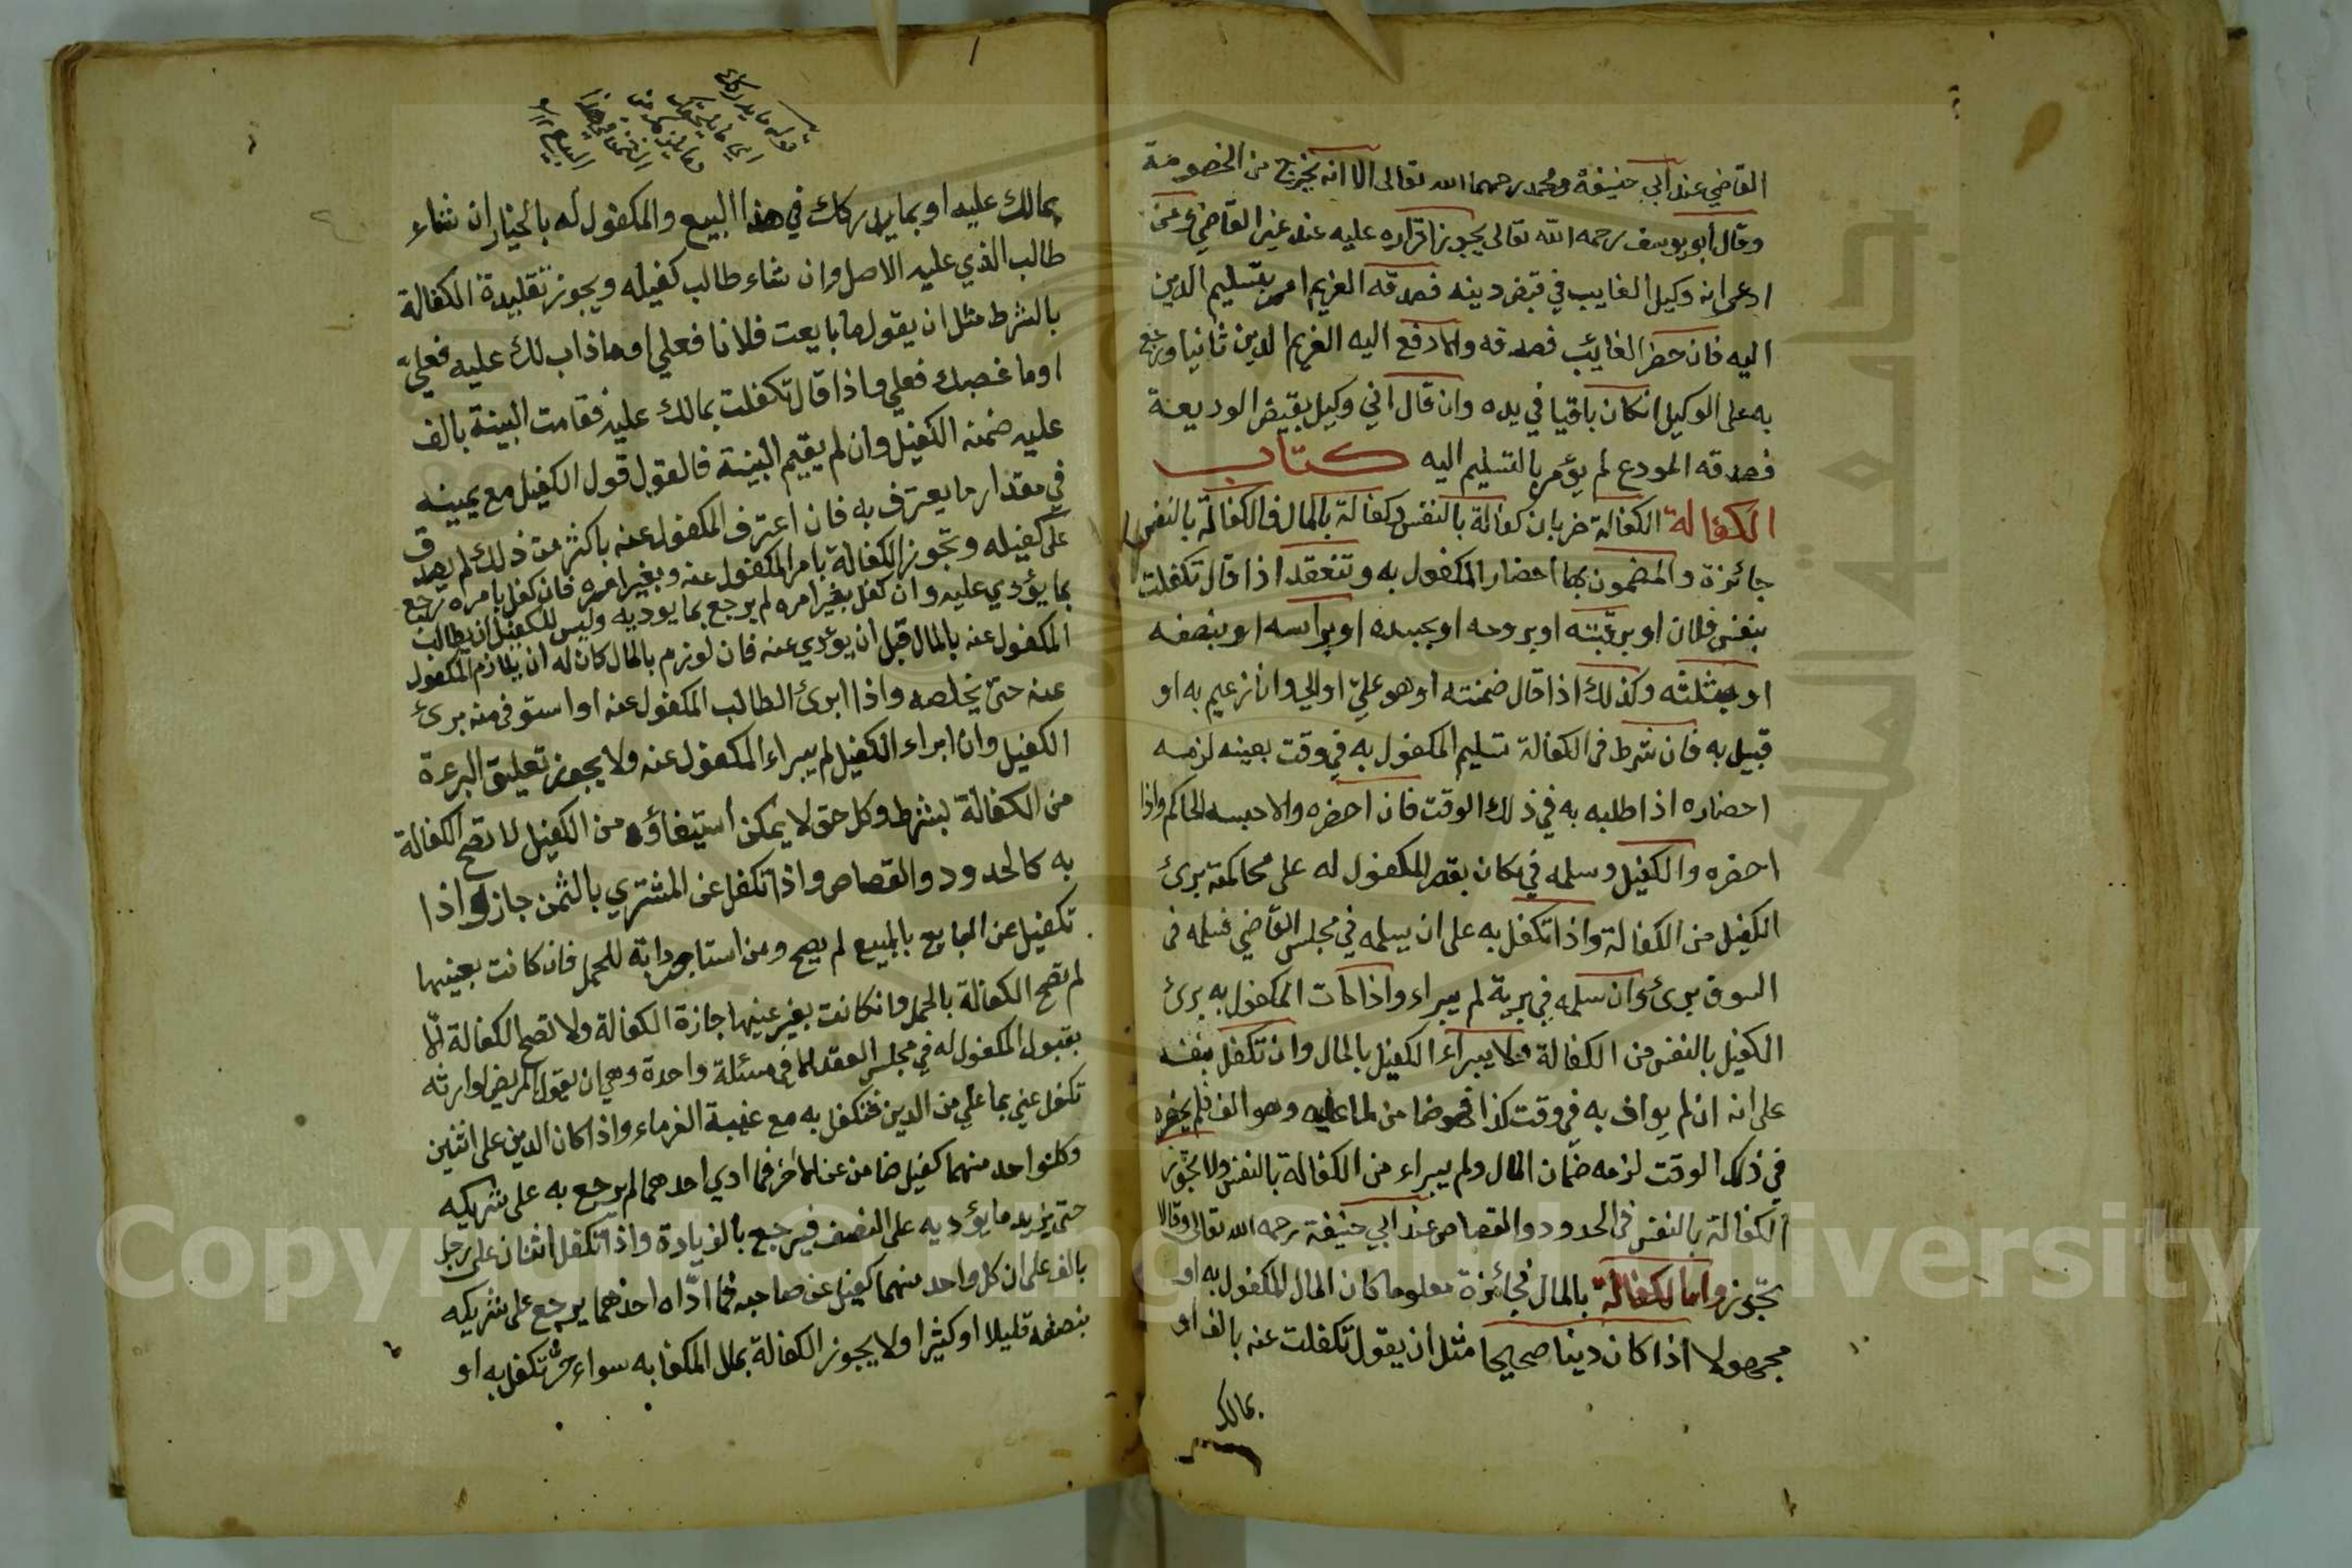 القاضي عند ابي حنيفة ومحمد رحمهما الله تعالى الا انه يخرج من الخصومة
وقال أبو يوسف رحمه الله تعالى يجوز اقراره عليه عند غير القاضي ومن
ادعى انه وكيل الغايب في قبض دينه فصدقه الغريم امر بتسليم الدين
اليه فان حضر الغائب فصدقه والا دفع اليه الغريم الدين ثانيا ورجع
به على الوكيل انكان باقيا في يده وان قال اني وكيل بقبض الوديعة
فصدقه المودع لم يؤمر بالتسليم اليه كتاب
الكفالة الكفالة ضربان كفالة بالنفس وكفالة بالمال فالكفالة بالنفس
جائزة والمضمون بها احضار المكفول به وتنعقد اذا قال تكفلت
بنفس فلان او برقبته او بروحه او بجسده او براسه او بنصفه
او بثلثه وكذلك اذا قال ضمنته او هو عليّ او الي وانا زعيم به او
قبيل به فان شرط في الكفالة تسليم المكفول به في وقت بعينه لزمه
احضاره اذا طلبه به في ذلك الوقت فان احضره والا حبسه الحاكم واذا
احضره والكفيل وسلمه في مكان يقدر المكفول له على محاكمته برئ
الكفيل من الكفالة واذا تكفل به على ان يسلمه في مجلس القاضي فسلمه في
السوق برئ وان سلمه في برية لم يبراء واذا مات المكفول به برئ
الكفيل بالنفس من الكفالة ولا يبراء الكفيل بالمال وان تكفل بنفسه
على انه ان لم يواف به في وقت كذا فهو ضامن لما عليه وهو الف فلم يحضره
في ذلك الوقت لزمه ضمان المال ولم يبراء من الكفالة بالنفس ولا تجوز
الكفالة بالنفس في الحدود والقصاص عند ابي حنيفة رحمه الله تعالى وقالا
تجوز واما الكفالة بالمال فجائزة معلوما كان المال المكفول به او
مجهولا اذا كان دينا صحيحا مثل أن يقول تكفلت عنه بالف او
بمالك
قوله ما يدركك
اي ما يلحقك
البيع
بمالك عليه او بما يدركك في هذا البيع والمكفول له بالخيار ان شاء
طالب الذي عليه الاصل وان شاء طالب كفيله ويجوز تقليدة الكفالة
بالشرط مثل ان يقول ما بايعت فلانا فعلي او ما ذاب لك عليه فعليّ
او ما غصبك فعلي واذا قال تكفلت بمالك عليه فقامت البينة بالف
عليه ضمنه الكفيل وان لم يقيم البينة فالقول قول الكفيل مع يمينه
في مقدار ما يعترف به فان اعترف المكفول عنه باكثر من ذلك لم يصدق
على كفيله وتجوز الكفالة بامر المكفول عنه وبغير امره فان كفل بامره رجع
بما يؤدي عليه وان كفل بغير امره لم يرجع بما يوديه وليس للكفيل ان يطالب
المكفول عنه بالمال قبل ان يؤدي عنه فان لوزم بالمال كان له ان يلازم المكفول
عنه حتى يخلصه واذا ابرئ الطالب المكفول عنه او استوفى منه برئ
الكفيل وان ابراء الكفيل لم يبراء المكفول عنه ولا يجوز تعليق البرءة
من الكفالة بشرط وكل حق لا يمكن استيفاؤه من الكفيل لا تصح الكفالة
به كالحدود والقصاص واذا تكفل عن المشتري بالثمن جاز واذا
تكفيل عن البايع بالمبيع لم يصح ومن استاجر دابة للحمل فان كانت بعينها
لم تصح الكفالة بالحمل وانكانت بغير عينها جازة الكفالة ولا تصح الكفالة الّا
بقبول المكفول له في مجلس العقد الا في مسئلة واحدة وهي ان يقول المريض لوارثه
تكفل عني بما علي من الدين فتكفل به مع غيبة الغرماء واذا كان الدين على اثنين
وكل واحد منهما كفيل ضامن عن الاخر فما ادي احدهما لم يرجع به على شريكه
حتى يزيد ما يؤديه على النصف فيرجع بالزيادة واذا تكفل اثنان على رجل
بالف على ان كل واحد منهما كفيل عن صاحبه فما ادّاه احدهما يرجع على شريكه
بنصفه قليلا او كثيرا ولا يجوز الكفالة بمال المكفا به سواء حر تكفل به او
Copyright © King Saud University